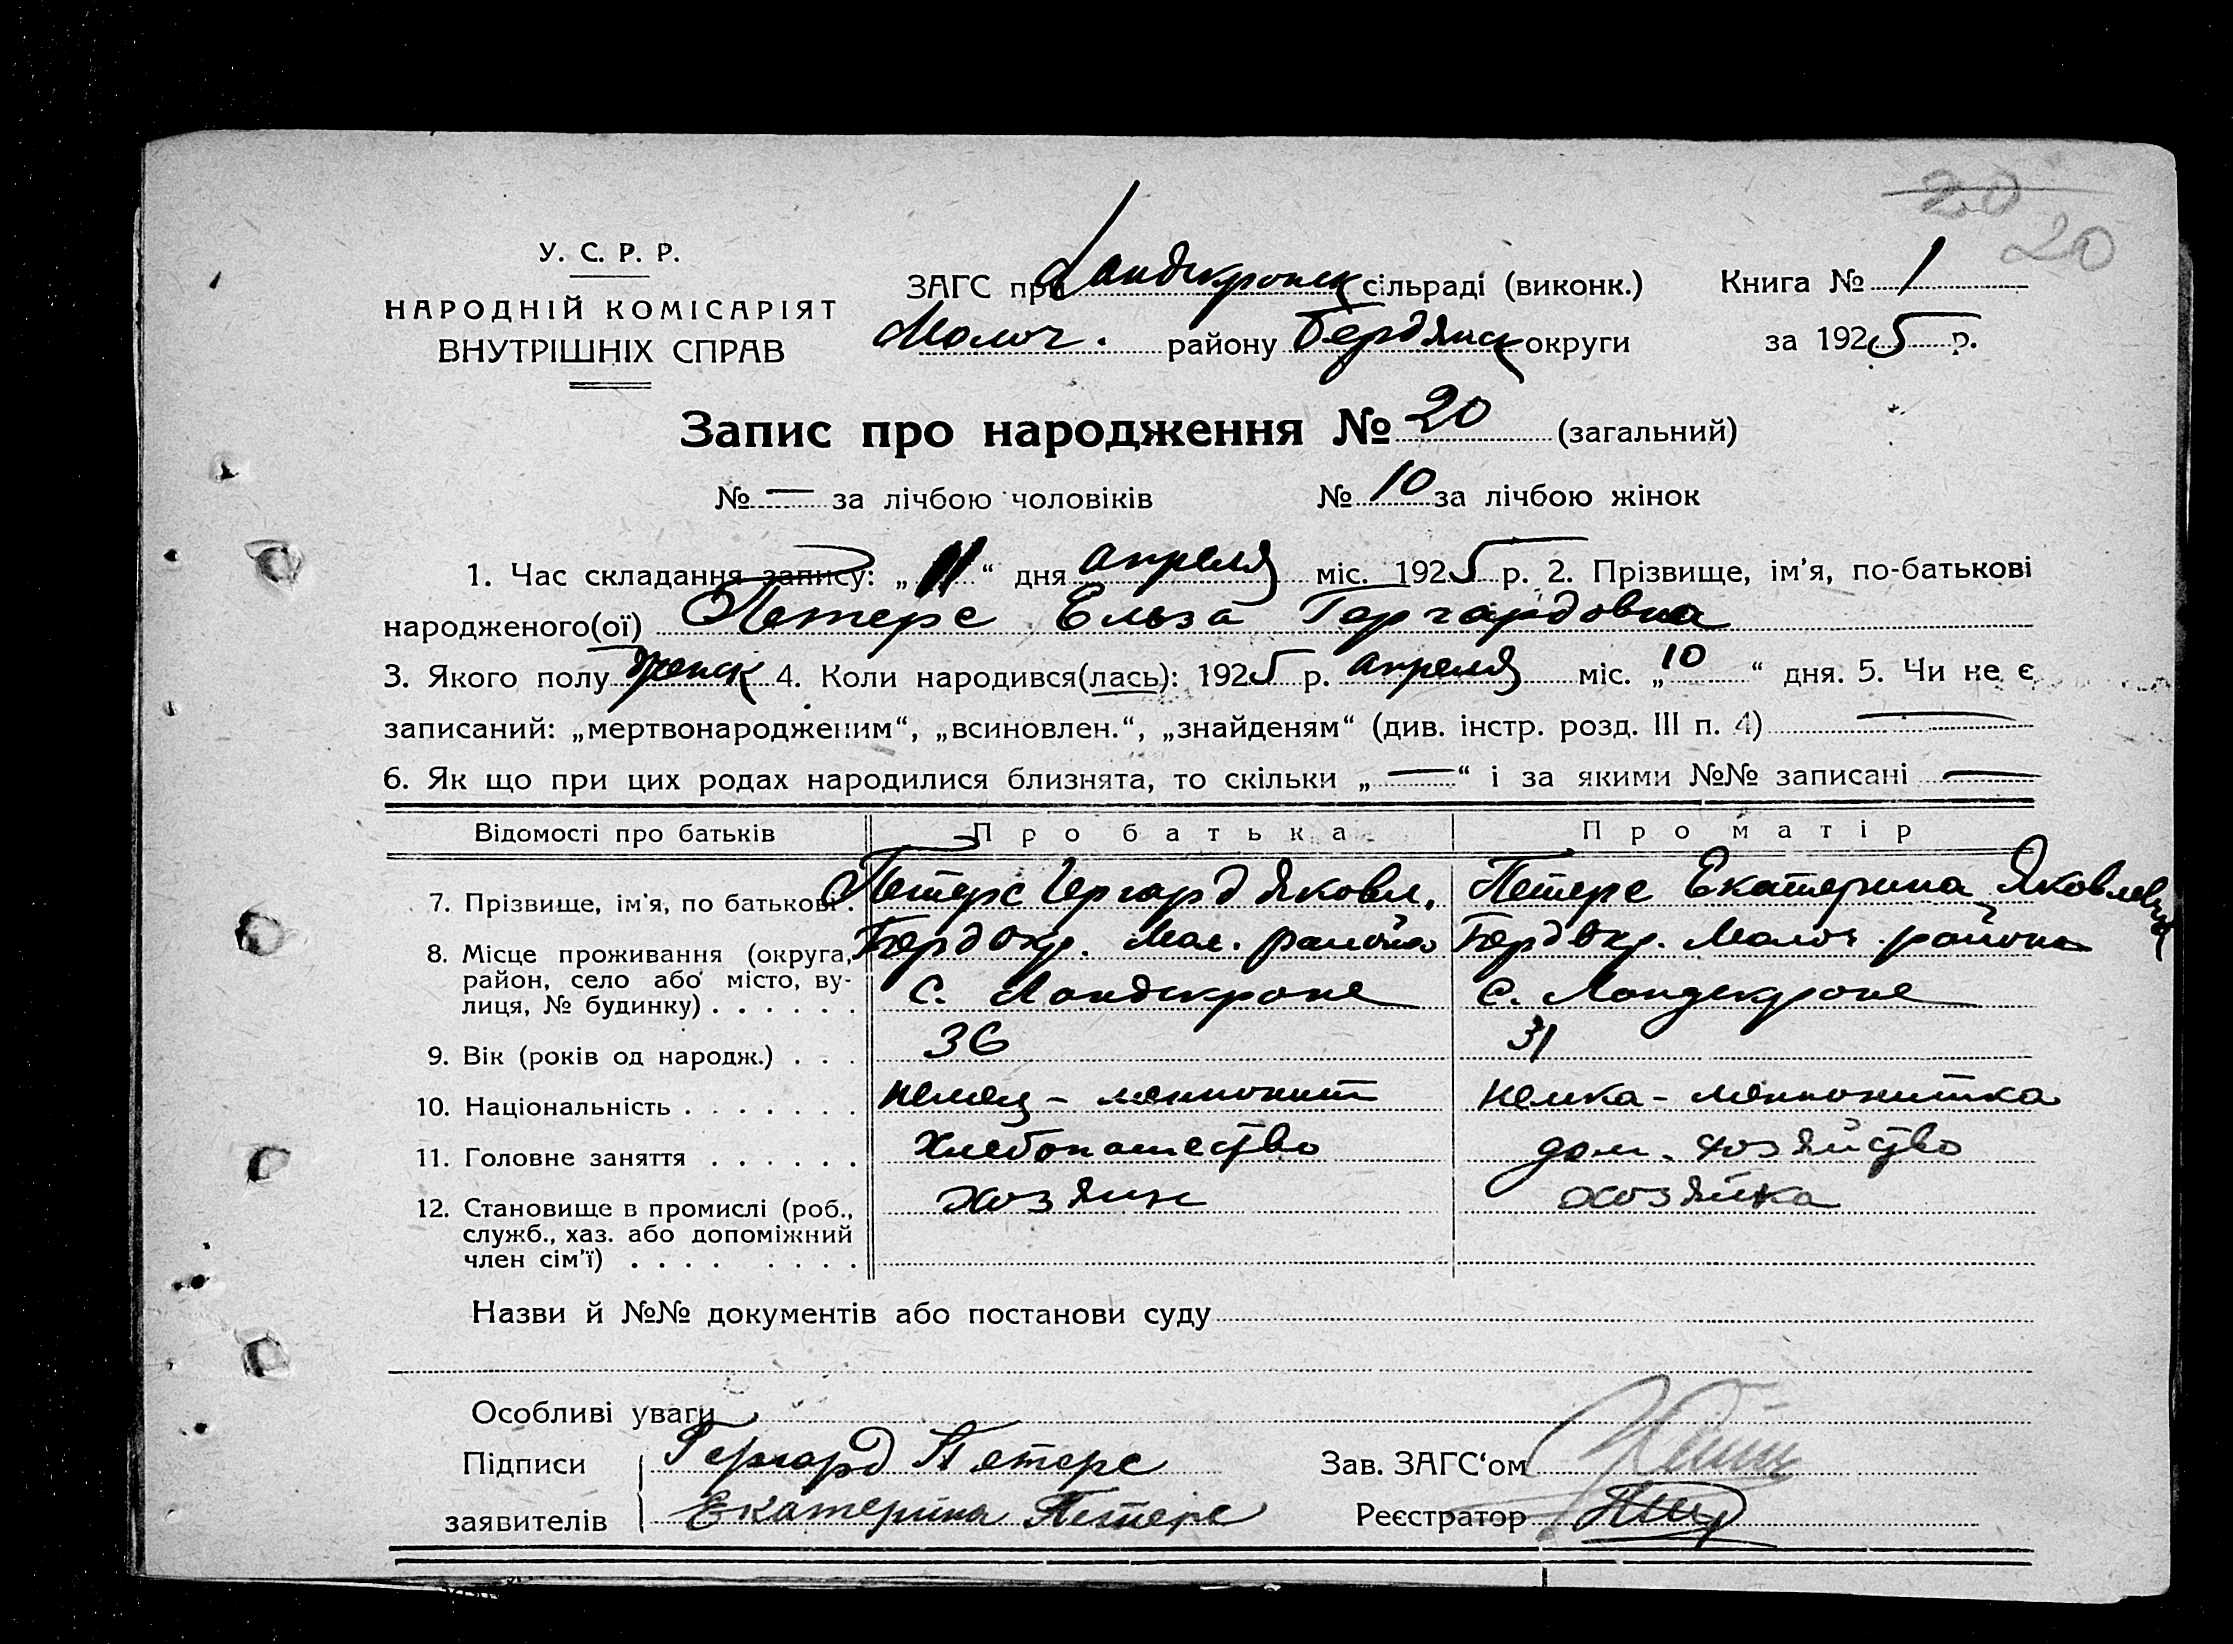 20
20
У. С. Р. Р.
НАРОДНІЙ КОМІСАРІЯТ
ВНУТРІШНІХ СПРАВ
ЗАГС при Ландскронск сільраді (виконк.)
Молоч. району Бердянск округи
Книга № 1
за 1925 р.
Запис про народження № 20 (загальний)
№ — за лічбою чоловіків № 10 за лічбою жінок
1. Час складання запису: „11“ дня апреля міс. 1925 р. 2. Прізвище, ім’я, по-батькові
народженого(ої) Петерс Ельза Гергардовна
3. Якого полу женск 4. Коли народився(лась): 1925 р. апреля міс. „10“ дня. 5. Чи не є
записаний: „мертвонародженим“, „всиновлен.“, „знайденям“ (див. інстр. розд. III п. 4) —
6. Як що при цих родах народилися близнята, то скільки „—“ і за якими №№ записані —
Відомості про батьків Про батька Про матір
7. Прізвище, ім’я, по батькові . Петерс Гергард Яковл. Петерс Екатерина Яковлевна
8. Місце проживання (округа, район, село або місто, вулиця, № будинку) . . . . . . Берд окр. Мол. района с. Ландскроне Берд окр. Молоч. района с. Ландскроне
9. Вік (років од народж.) . . . 36 31
10. Національність . . . . . . . немец - меннонит немка - меннонитка
11. Головне заняття . . . . . . хлебопашество дом. хозяйство
12. Становище в промислі (роб., служб., хаз. або допоміжний член сім’ї) . . . . . . . . хозяин хозяйка
Назви й №№ документів або постанови суду
Особливі уваги
Підписи заявителів Гергард Петерс
Екатерина Петерс
Зав. ЗАГС‘ом
Реєстратор